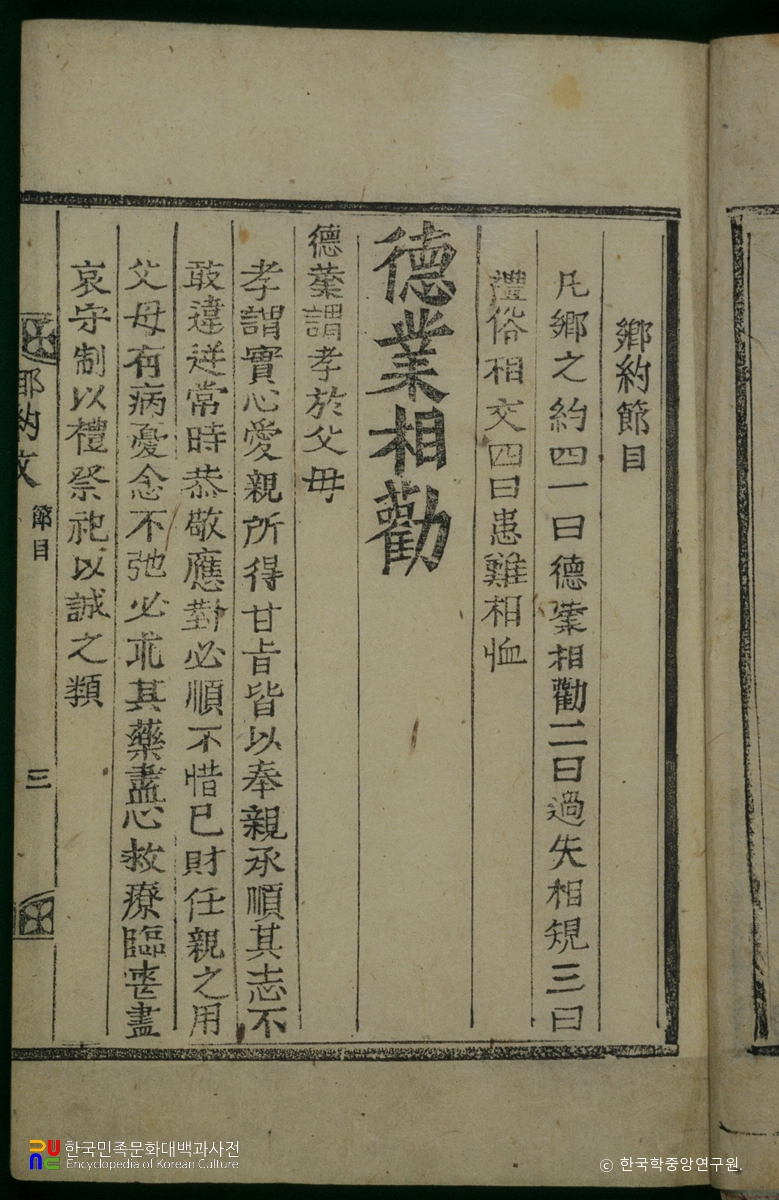 鄉約節目
凡鄉之約四一曰德業相勸二曰過失相規三曰
禮俗相交四曰患難相恤
德業相勸
德業謂孝於父母
孝謂實心愛親所得甘旨皆以奉親承順其志不
敢違逆常時恭敬應對必順不惜己財任親之用
父母有病憂念不弛必求其藥盡心救療臨喪盡
哀守制以禮祭祀以誠之類
鄉約文
節目
三
한국민족문화대백과사전
Encyclopedia of Korean Culture
© 한국학중앙연구원